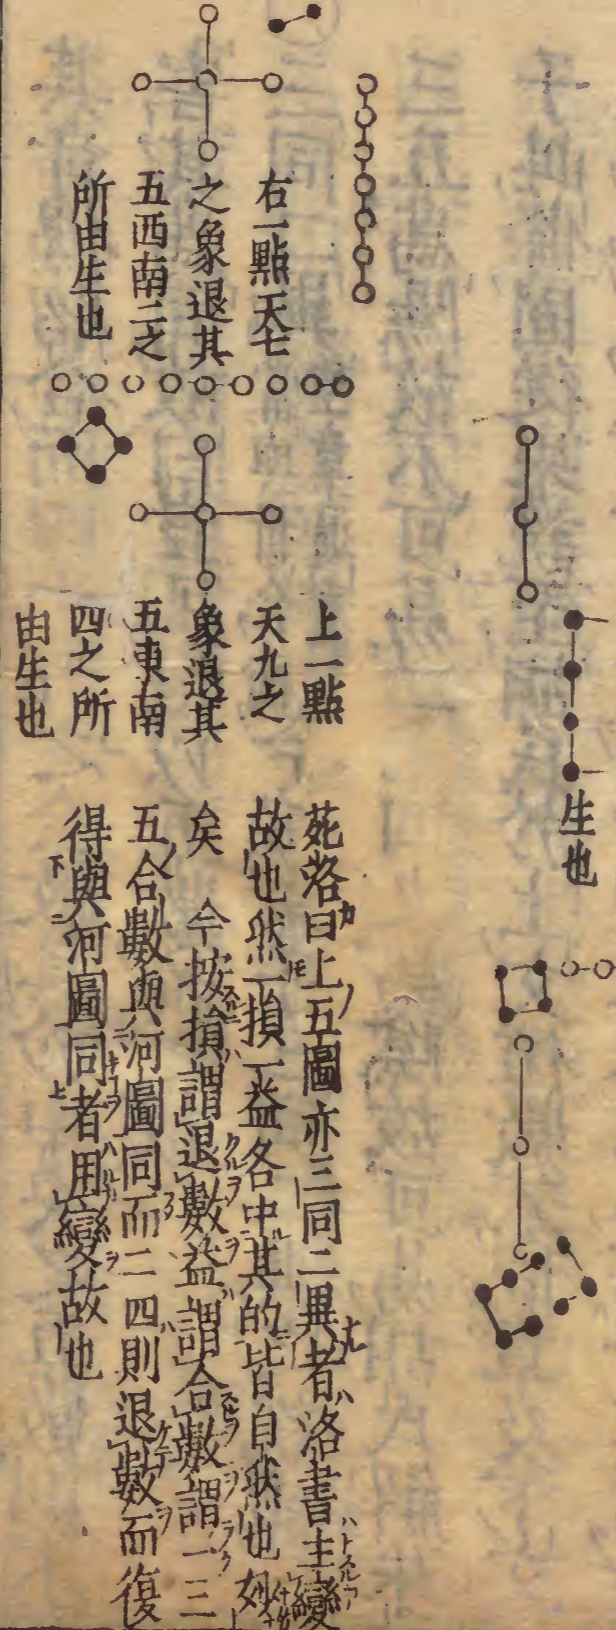 生也
右一點天七
之象退其
五西南二之
所由生也
上一點
天九之
象退其
五東南
四之所
由生也
苑洛曰上五圖亦三同二異者洛書主變
故也然一損一益各中其的皆自然也妙
矣 今按損謂退數益謂合數謂一三
五合數與河圖同而二四則退數而復
得與河圖同者用變故也